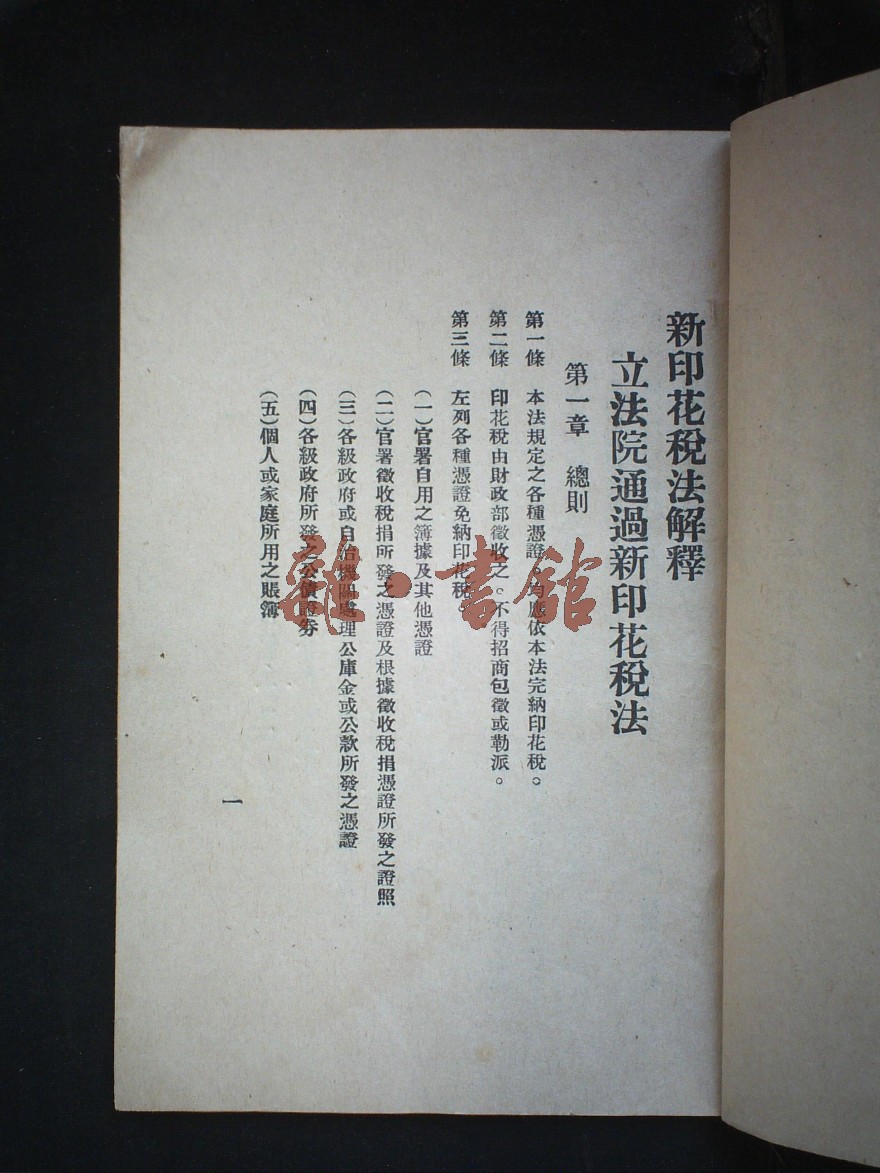 新印花稅法解釋
立法院通過新印花稅法
第一章 總則
第一條 本法規定之各種憑證。均應依本法完納印花稅。
第二條 印花稅由財政部徵收之。不得招商包徵或勒派。
第三條 左列各種憑證免納印花稅。
(一)官署自用之簿據及其他憑證
(二)官署徵收稅捐所發之憑證及根據徵收稅捐憑證所發之證照
(三)各級政府或自治機關處理公庫金或公款所發之憑證
(四)各級政府所發之公債證券
(五)個人或家庭所用之賬簿
一
雜·書館